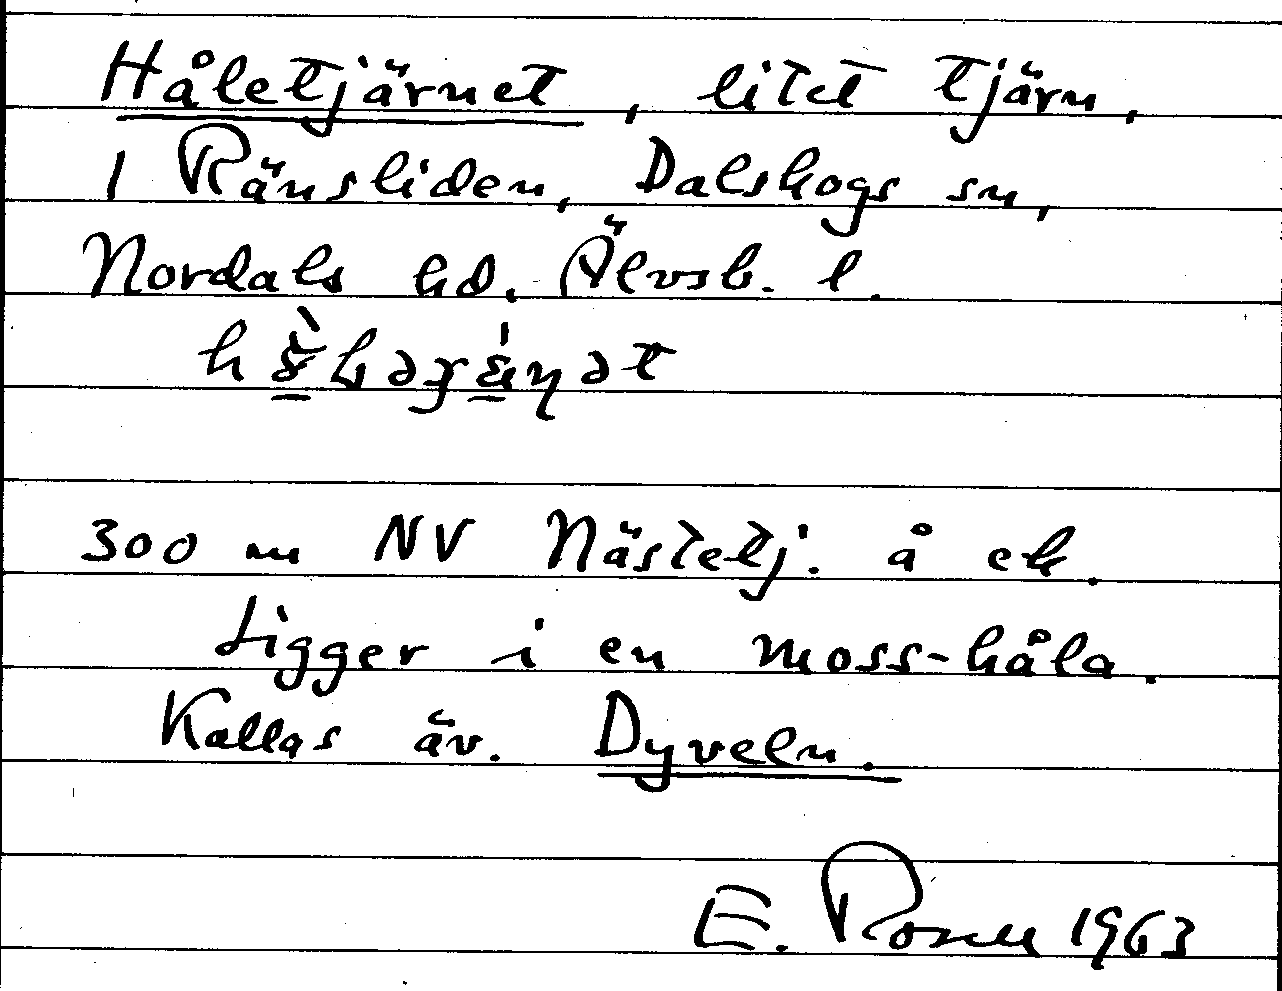 Håletjärnet, litet tjärn,
i Ränsliden, Dalskogs sn,
Nordals hd. Älvsb. l.
300 m NV Nästetj. å ek.
Ligger i en moss-håla.
Kallas äv. Dyveln.
E. 1963